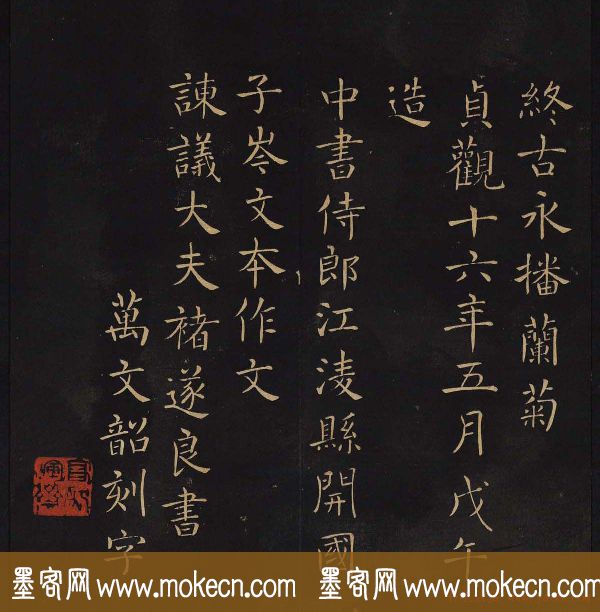 終古永播蘭菊
貞觀十六年五月戊午
造
中書侍郎江淩縣開國
子岑文本作文
諫議大夫褚遂良書
萬文韶刻字
墨客网 www.mokecn.com 墨客网 www.mokecn.com